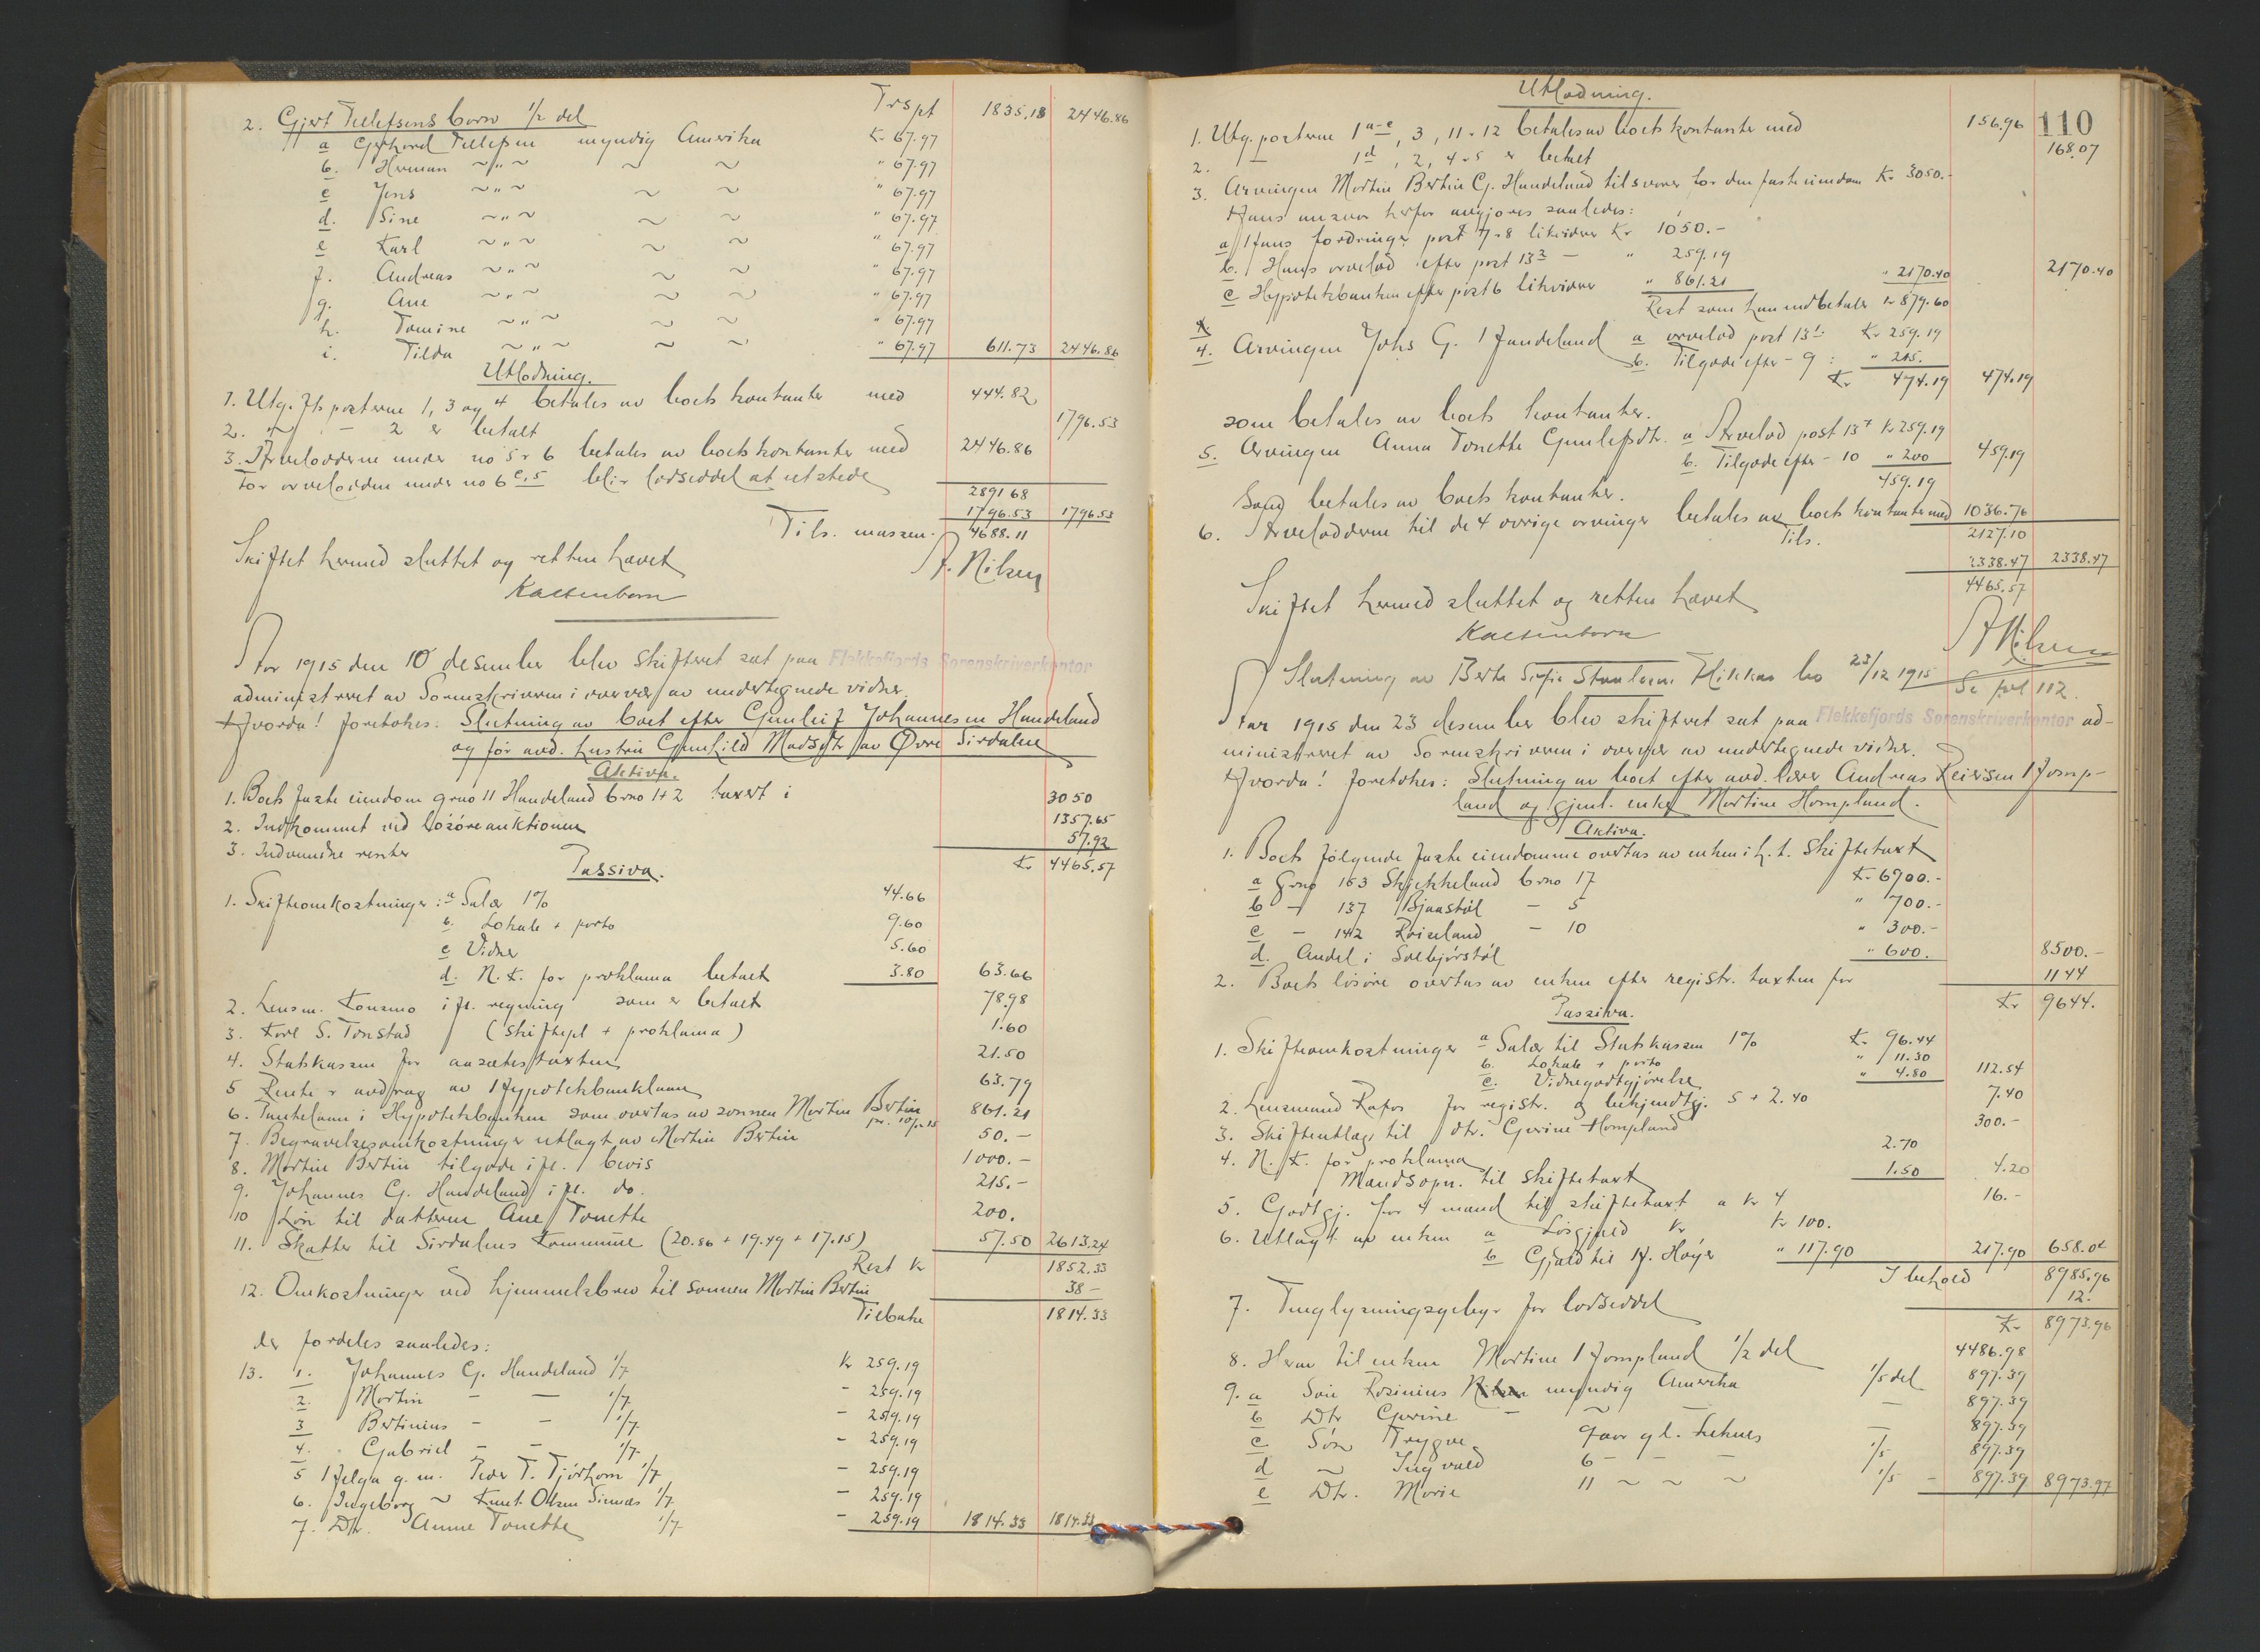 Trspt 1835.13 2446.86
2. Gjert Tellefsens børn 1/2 del
a Gerhard Tellefsen myndig Amerika Kr 67.97
b. Herman ~"~ ~ ~ " 67.97
c Jens ~"~ ~ ~ " 67.97
d. Sine ~"~ ~ ~ " 67.97
e Karl ~"~ ~ ~ " 67.97
f. Andreas ~"~ ~ ~ " 67.97
g. Ane ~"~ ~ ~ " 67.97
h. Tomine ~"~ ~ ~ " 67.97
i. Tilda ~"~ ~ ~ " 67.97 611.73 2446.86
Utlodning.
1. Utg. posterne 1, 3 og 4 betales av boets kontanter med 444.82
2. - 2 er betalt 1796.53
3. Arvelodderne under no 5 & 6 betales av boets kontanter med 2446.86
For arvelodden under no 6 blir lodseddel at utstede
2891 68
1796.53 1796.53
Tils. massen. 4688.11
Skiftet hermed sluttet og retten hævet
Kaltenborn A. Nilsen
Aar 1915 den 10 desember blev skifteret sat paa Flekkefjords Sorenskriverkontor
administreret av Sorenskriveren i overvær av undertegnede vidner.
Hvorda! foretokes: Slutning av boet efter Gunleif Johannesen Handeland
og før avd. hustru Gunhild Madsdtr av Øvre Sirdalen
Aktiva.
1. Boets faste eiendom grno 11 Handeland brno 1+2 taxert i 3050
2. Indkommet ved løsøreauktionen 1357.65
3. Indvundne renter 57.92
Kr 4465.57
Passiva.
1. Skifteomkostninger: a Salær 1% 44.66
b. Lokale + porto 9.60
c Vidner 5.60
d. N. K. for proklama betalt 3.80 63.66
2. Lensm. Konsmo i fl. regning som er betalt 78.98
3. Tore S. Tonstad (skiftepl + proklama) 1.60
4. Statskassen for ansættelsestaxten 21.50
5 Rente & avdrag av Hypotekbanklaan 63.79
6. Pantelaan i Hypotekbanken som overtas av sønnen Martin Bertin 861.21
7. Begravelsesomkostninger utlagt av Martin Bertin 50.–
8. Martin Bertin tilgode i fl. bevis 1000.–
9. Johannes G. Handeland i fl. do. 215.–
10 Løn til datteren Ane Tonette 200.
11. Skatter til Sirdalens Kommune (20.86 + 19.49 + 17.15) 57.50 2613.24
Rest kr 1852.33
12. Omkostninger ved hjemmelsbrev til sønnen Martin Bertin 38 –
Tilbake 1814.33
der fordeles saaledes:
13. 1. Johannes G. Handeland 1/7 kr 259.19
2. Martin – – 1/7 - 259.19
3 Bertinius – – 1/7 - 259.19
4. Gabriel – – 1/7 - 259.19
5 Helga g. m. Peder T. Tjørhom 1/7 - 259.19
6. Ingeborg ~ Knut Olsen Sinnæs 1/7 - 259.19
7. Dtr. Anne Tonette 1/7 - 259.19 1814.33 1814.33
Utlodning.
110
1. Utg. posterne 1 a-c, 3, 11 & 12 betales av boets kontanter med 156.96
2. 1 d, 2, 4 & 5 er betalt 168.07
3. Arvingen Martin Bertin G. Handeland tilsvarer for den faste eiendom Kr 3050.–
Hans ansvar herfor avgjøres saaledes:
a Hans fordringer post 7 & 8 likviderer Kr 1050.–
b. Hans arvelod efter post 13 2 – " 259.19
c Hypotekbanken efter post 6 likviderer " 861.21 " 2170.40 2170.40
Rest som han indbetaler kr 879.60
4. Arvingen Johs G. Handeland a arvelod post 13 1: Kr 259.19
b. Tilgode efter - 9: " 215.
Kr 474.19 474.19
som betales av boets kontanter.
5. Arvingen Anna Tonette Gunleifsdtr. a Arvelod post 13 7 Kr 259.19
b. Tilgode efter - 10 " 200 459.19
459.19
som betales av boets kontanter.
6. Arvelodderne til de 4 øvrige arvinger betales av boets kontanter med 1036.76
Tils. 2127.10
2338.47 2338.47
4465.57
Skiftet hermed sluttet og retten hævet
Kaltenborn A Nilsen
Slutning av Berte Sofie Staalesen Flikkas bo 23/12 1915 Se fol 112.
Aar 1915 den 23 desember blev skifteret sat paa Flekkefjords Sorenskriverkontor ad-
ministreret av Sorenskriveren i overvær av undertegnede vidner.
Hvorda! foretokes: Slutning av boet efter avd. lærer Andreas Reiersen Homp-
land og gjenl. enke Martine Hompland.
Aktiva.
1. Boets følgende faste eiendomme overtas av enken i h. t. skiftetaxt
a Grno 153 Skjekkeland brno 17 Kr 6900.–
b – 137 Bjaastøl – 5 " 700.–
c – 142 Røiseland – 10 " 300.–
d. Andel i Solbjørstøl " 600. 8500.–
2. Boets løsøre overtas av enken efter registr. taxten for 1144
Kr 9644.
Passiva.
1. Skifteomkostninger a Salær til Statskassen 1% Kr 96.44
b. Lokale + porto " 11.30
c. Vidnegodtgjørelse " 4.80 112.54
2. Lensmand Rafos for registr. og bekjendtgj. 5 + 2.40 7.40
3. Skifteutlæg til dtr. Gerine Hompland 300.–
4. N. K. for proklama 2.70
Mandsopn. til skiftetaxt 1.50 4.20
5. Godtgj. for 4 mænd til skiftetaxt a kr 4 16.–
6. Utlagt av enken a Løsgjæld kr Kr 100.
b Gjæld til H. Høyer " 117.90 217.90 658.04
I behold 8985.96
7. Tinglysningsgebyr for lodseddel 12.
Kr 8973.96
8. Herav til enken Martine Hompland 1/2 del 4486.98
9. a Søn Rosinius myndig Amerika 1/5 del 897.39
b Dtr Gerine – ~ — 897.39
c Søn Trygve 9 aar gl. Leknes — 897.39
d ~ Ingvald 6 – – – 1/5 897.39
e Dtr. Marie 11 ~ ~ ~ 1/5 – 897.39 8973.97